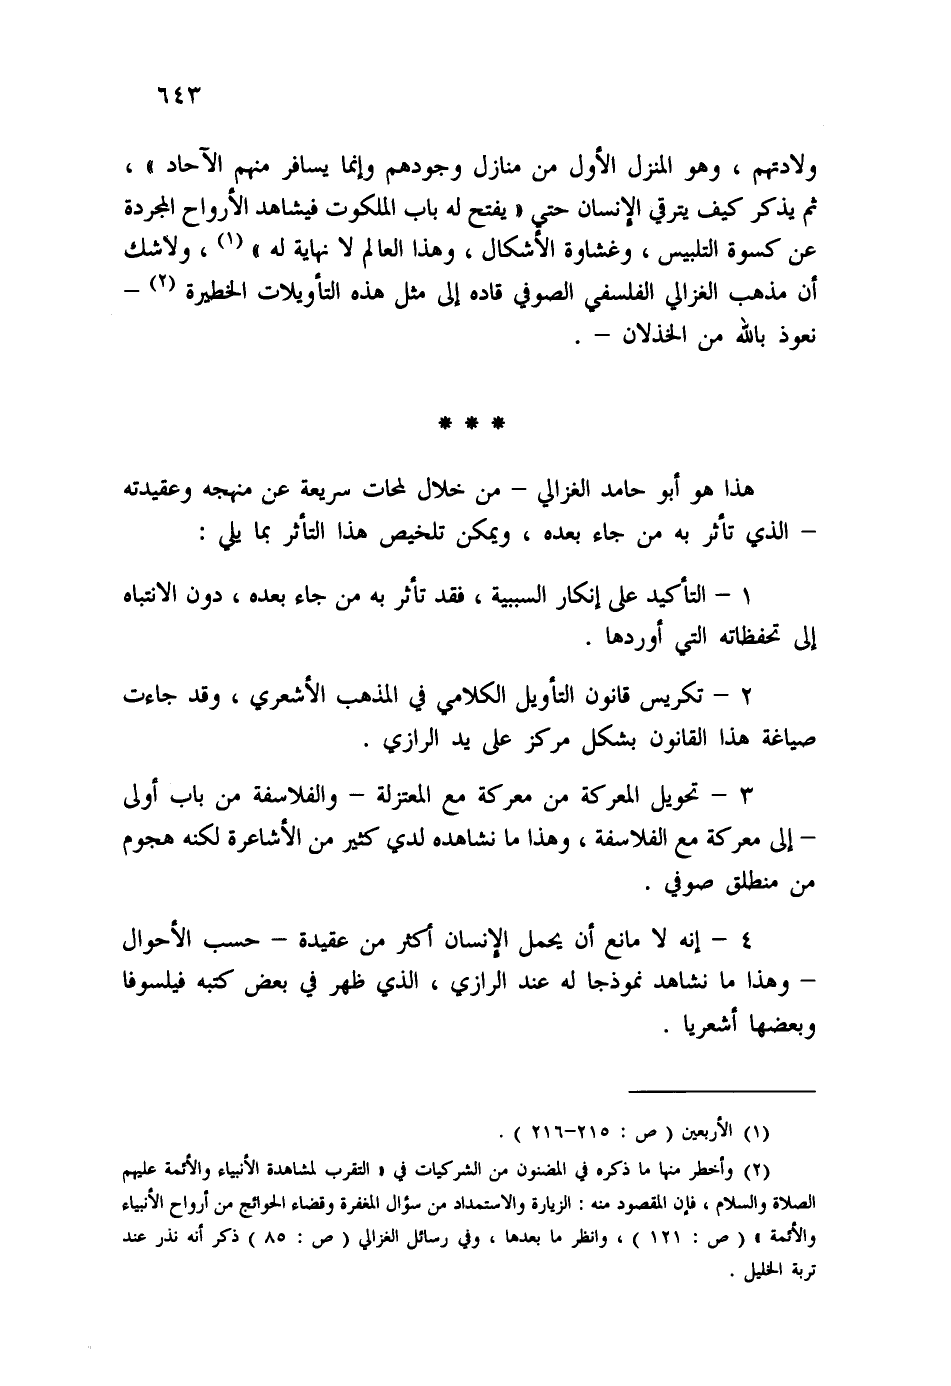 ٦٤٣
ولادتهم ، وهو المنزل الأول من منازل وجودهم وإنما يسافر منهم الآحاد » ،
ثم يذكر كيف يترقي الإنسان حتي « يفتح له باب الملكوت فيشاهد الأرواح المجردة
عن كسوة التلبيس ، وغشاوة الأشكال ، وهذا العالم لا نهاية له » (١) ، ولاشك
أن مذهب الغزالي الفلسفي الصوفي قاده إلى مثل هذه التأويلات الخطيرة (٢) –
نعوذ بالله من الخذلان – .
* * *
هذا هو أبو حامد الغزالي – من خلال لمحات سريعة عن منهجه وعقيدته
– الذي تأثر به من جاء بعده ، ويمكن تلخيص هذا التأثر بما يلي :
١ – التأكيد على إنكار السببية ، فقد تأثر به من جاء بعده ، دون الانتباه
إلى تحفظاته التي أوردها .
٢ – تكريس قانون التأويل الكلامي في المذهب الأشعري ، وقد جاءت
صياغة هذا القانون بشكل مركز على يد الرازي .
٣ – تحويل المعركة من معركة مع المعتزلة – والفلاسفة من باب أولى
– إلى معركة مع الفلاسفة ، وهذا ما نشاهده لدي كثير من الأشاعرة لكنه هجوم
من منطلق صوفي .
٤ – إنه لا مانع أن يحمل الإنسان أكثر من عقيدة – حسب الأحوال
– وهذا ما نشاهد نموذجا له عند الرازي ، الذي ظهر في بعض كتبه فيلسوفا
وبعضها أشعريا .
(١) الأربعين ( ص : ٢١٥–٢١٦ ) .
(٢) وأخطر منها ما ذكره في المضنون من الشركيات في « التقرب لمشاهدة الأنبياء والأئمة عليهم
الصلاة والسلام ، فإن المقصود منه : الزيارة والاستمداد من سؤال المغفرة وقضاء الحوائج من أرواح الأنبياء
والأئمة » ( ص : ١٢١ ) ، وانظر ما بعدها ، وفي رسائل الغزالي ( ص : ٨٥ ) ذكر أنه نذر عند
تربة الخليل .